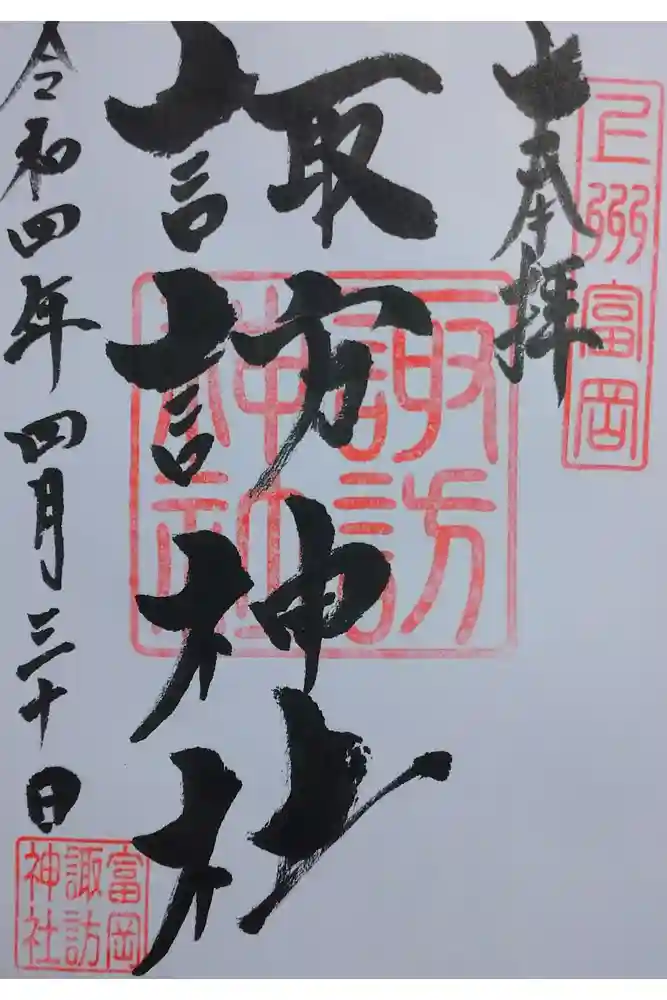 奉拝
上州富岡
諏訪神社
諏訪神社
令和四年四月三十日
富岡諏訪神社